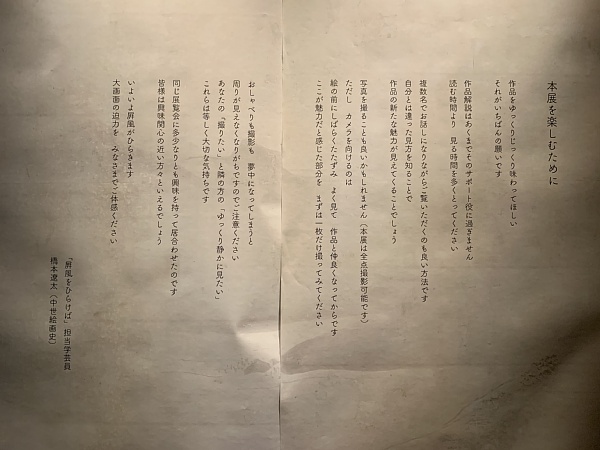 本展を楽しむために
作品をゆっくりじっくり味わってほしい
それがいちばんの願いです
作品解説はあくまでそのサポート役に過ぎません
読む時間より 見る時間を多くとってください
複数名でお話しになりながらご覧いただくのも良い方法です
自分とは違った見方を知ることで
作品の新たな魅力が見えてくることでしょう
写真を撮ることも良いかもしれません（本展は全点撮影可能です）
ただし カメラを向けるのは
絵の前にしばらくたたずみ よく見て 作品と仲良くなってからです
ここが魅力だと感じた部分を まずは一枚だけ撮ってみてください
おしゃべりも撮影も 夢中になってしまうと
周りが見えなくなりがちですのでご注意ください
あなたの「撮りたい」と隣の方の「ゆっくり静かに見たい」
これらは等しく大切な気持ちです
同じ展覧会に多少なりとも興味を持って居合わせたのです
皆様は興味関心の近い方々といえるでしょう
いよいよ屏風がひらきます
大画面の迫力を みなさまでご体感ください
「屏風をひらけば」担当学芸員
橋本遼太（中世絵画史）